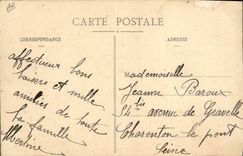 CARTE POSTALE
CORRESPONDANCE
ADRESSE
affectueux bons
baisers et mille
amitiés de toute
la famille
Mademoiselle
Jeanne Baroux
4 bis avenue de Gravelle
Charenton le pont
Seine